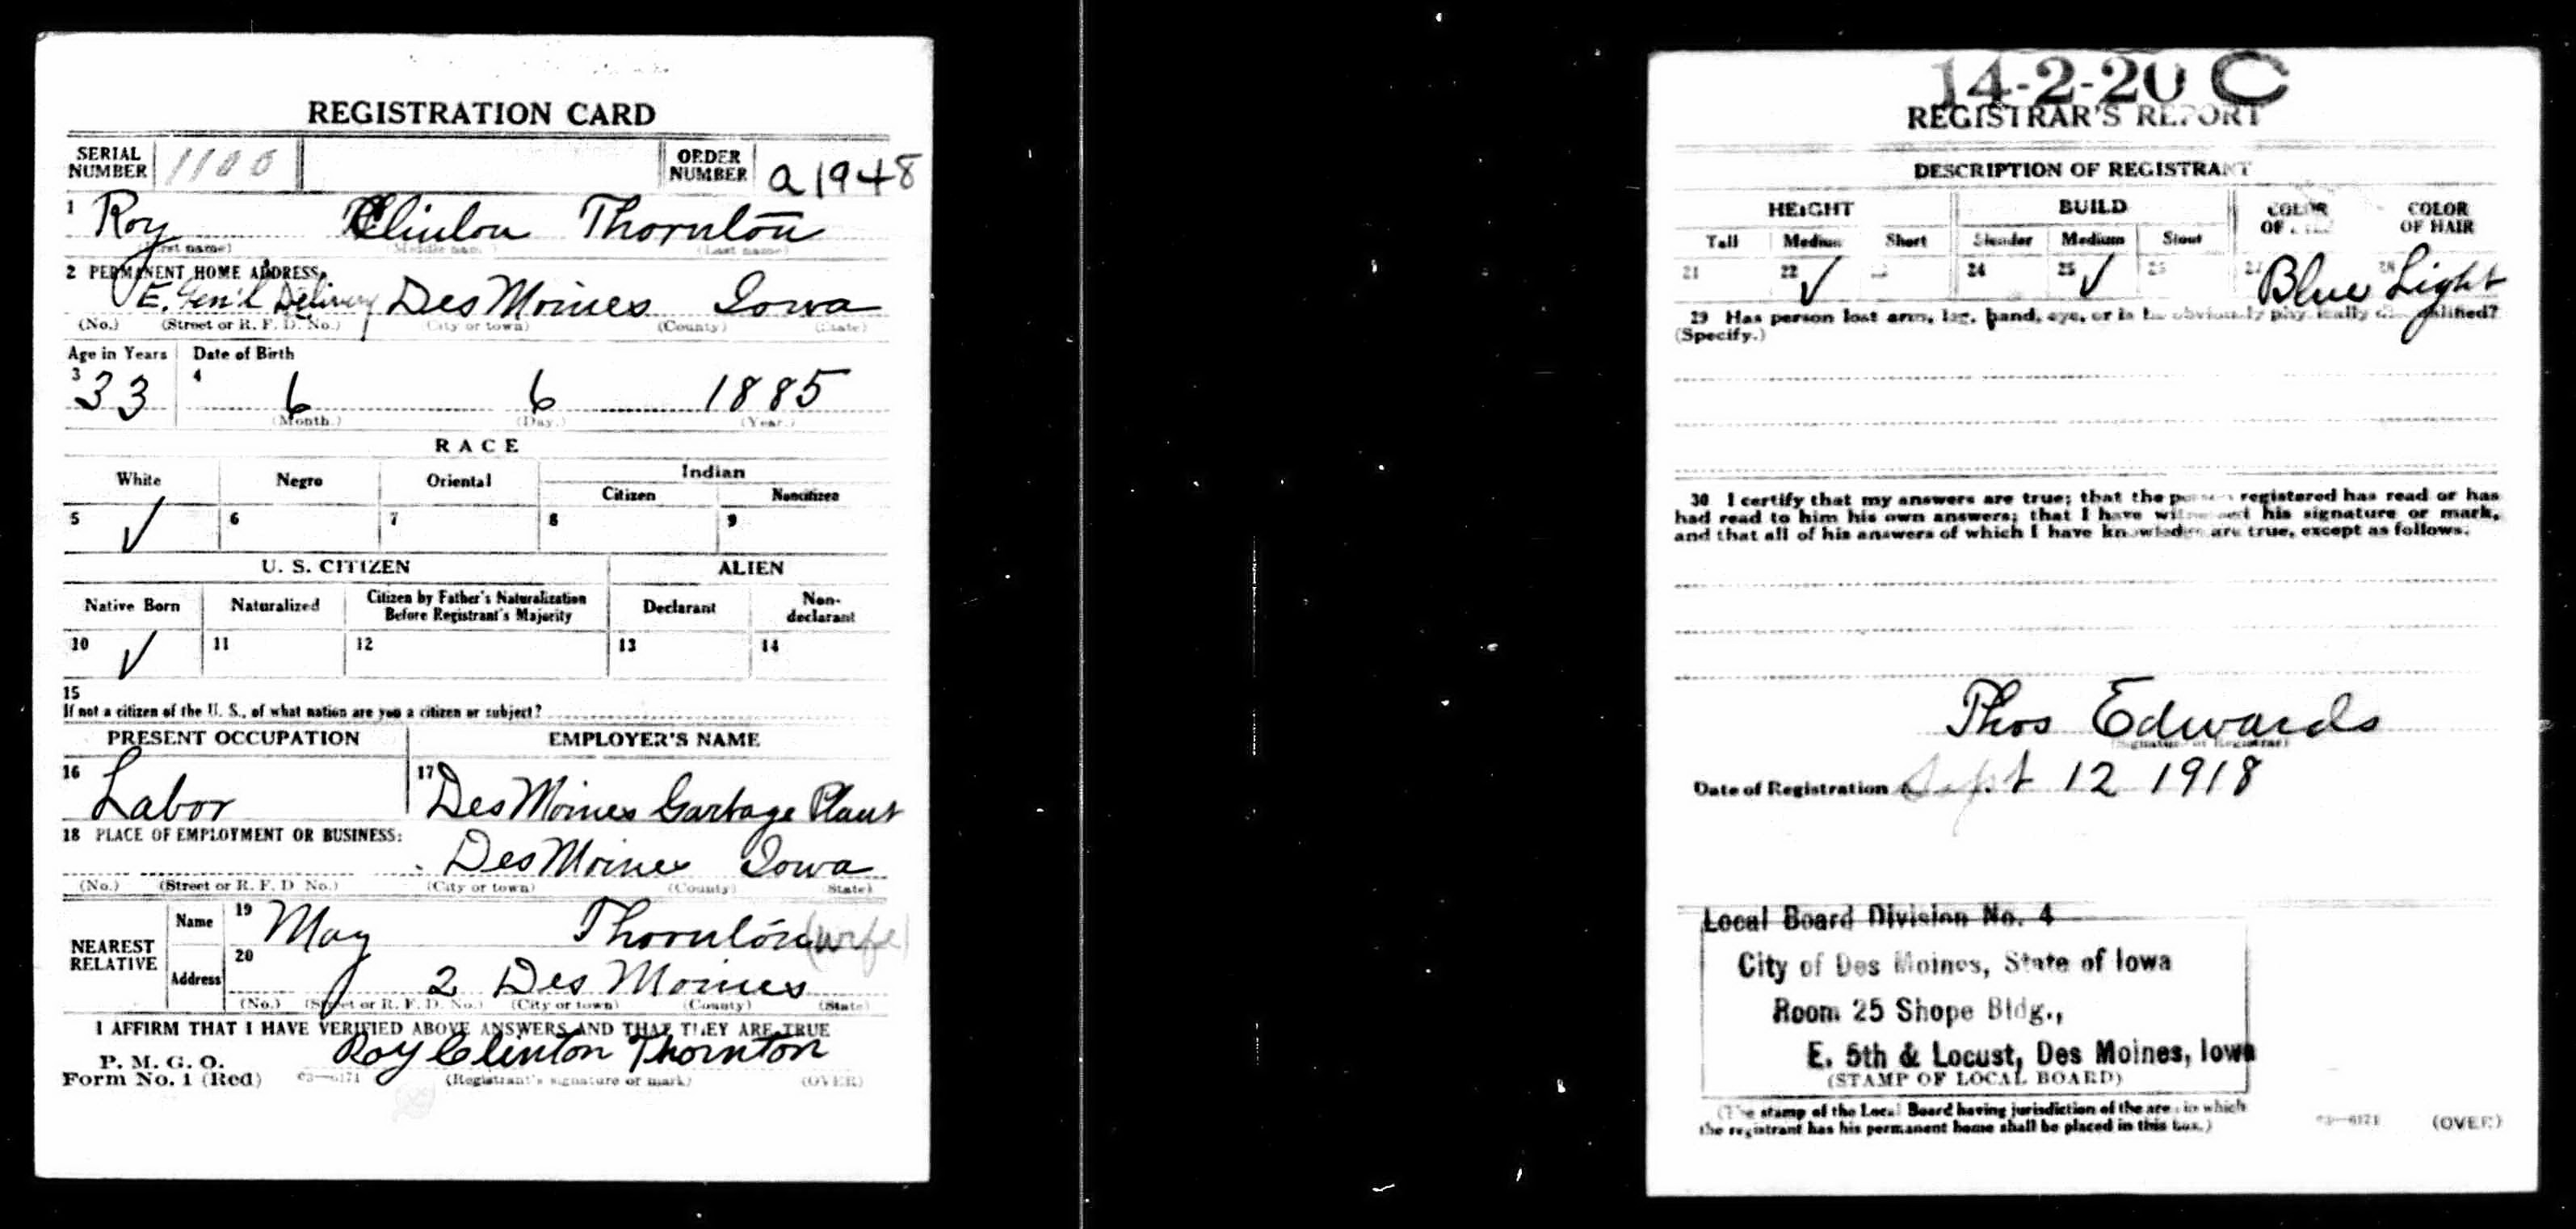 REGISTRATION CARD
SERIAL NUMBER 1100 ORDER NUMBER a1948
1 Roy Clinton Thornton
(First name) (Middle name) (Last name)
2 PERMANENT HOME ADDRESS:
E. Gen'l Delivery Des Moines Iowa
(No.) (Street or R. F. D. No.) (City or town) (County) (State)
Age in Years Date of Birth
3 33 4 6 6 1885
(Month.) (Day.) (Year.)
RACE
White Negro Oriental Indian
Citizen Noncitizen
5 ✓ 6 7 8 9
U. S. CITIZEN ALIEN
Native Born Naturalized Citizen by Father's Naturalization Before Registrant's Majority Declarant Non-declarant
10 ✓ 11 12 13 14
15
If not a citizen of the U. S., of what nation are you a citizen or subject?
PRESENT OCCUPATION EMPLOYER'S NAME
16 Labor 17 Des Moines Garbage Plant
18 PLACE OF EMPLOYMENT OR BUSINESS:
Des Moines Iowa
(No.) (Street or R. F. D. No.) (City or town) (County) (State)
NEAREST RELATIVE Name 19 May Thornton (wife)
Address 20 2 Des Moines
(No.) (Street or R. F. D. No.) (City or town) (County) (State)
I AFFIRM THAT I HAVE VERIFIED ABOVE ANSWERS AND THAT THEY ARE TRUE
P. M. G. O.
Form No. 1 (Red) 03—6171 Roy Clinton Thornton
(Registrant's signature or mark) (OVER)
14-2-20 C
REGISTRAR'S REPORT
DESCRIPTION OF REGISTRANT
HEIGHT BUILD COLOR OF EYES COLOR OF HAIR
Tall Medium Short Slender Medium Stout
21 22 ✓ 23 24 25 ✓ 26 27 Blue 28 Light
29 Has person lost arm, leg, hand, eye, or is he obviously physically disqualified?
(Specify.)
30 I certify that my answers are true; that the person registered has read or has
had read to him his own answers; that I have witnessed his signature or mark,
and that all of his answers of which I have knowledge are true, except as follows:
Thos Edwards
(Signature of Registrar)
Date of Registration Sept 12 1918
Local Board Division No. 4
City of Des Moines, State of Iowa
Room 25 Shope Bldg.,
E. 5th & Locust, Des Moines, Iowa
(STAMP OF LOCAL BOARD)
(The stamp of the Local Board having jurisdiction of the area in which
the registrant has his permanent home shall be placed in this box.)
03—6171 (OVER)